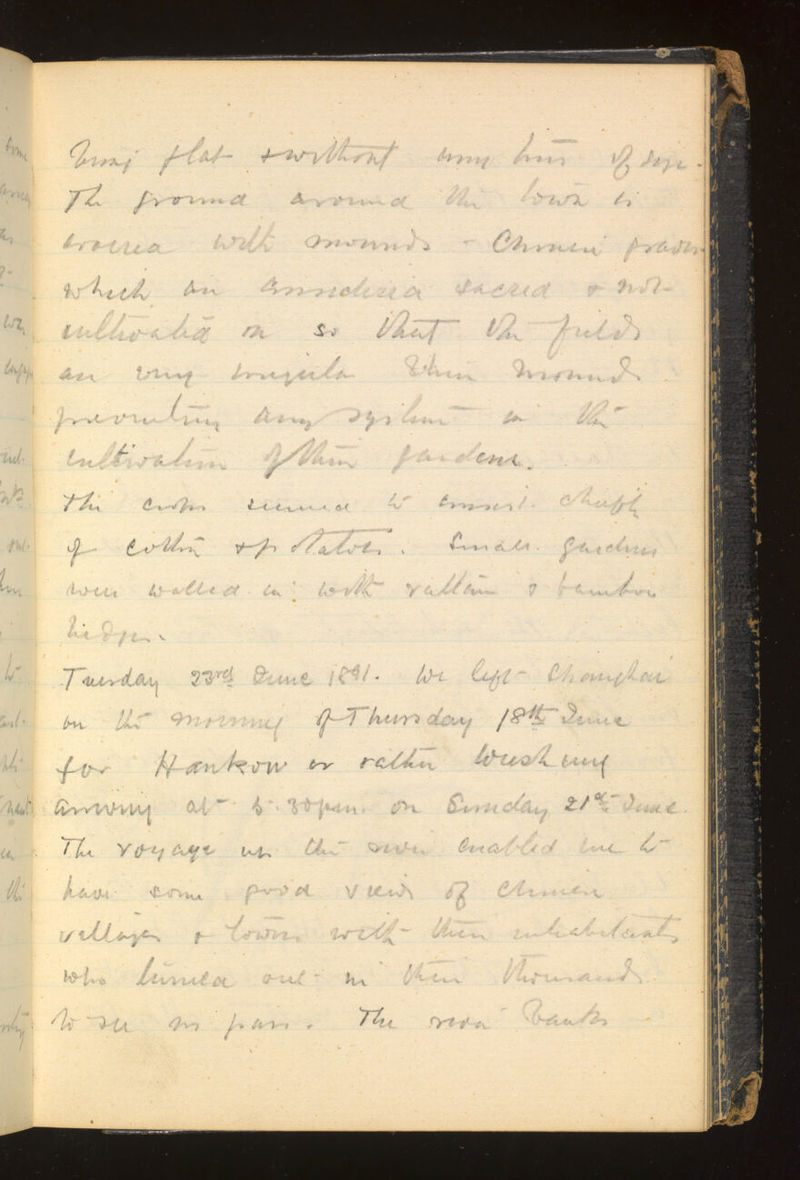 being flat & without any trees of size.
The ground around the town is
covered with mounds - Chinese graves
which are considered sacred & not
cultivated on so that the fields
are very irregular these mounds
preventing any system in the
cultivation of their gardens.
The crops seemed to consist chiefly
of cotton & potatoes. Small gardens
were walled in with rattan & bamboo
hedges.
Tuesday 23rd June 1891. We left Shanghai
on the morning of Thursday 18th June
for Hankow or rather Wuchung
arriving at 5.30 pm. on Sunday 21st June.
The voyage up the river enabled me to
have some good views of Chinese
villages & towns with their inhabitants
who turned out in their thousands
to see us pass. The river banks